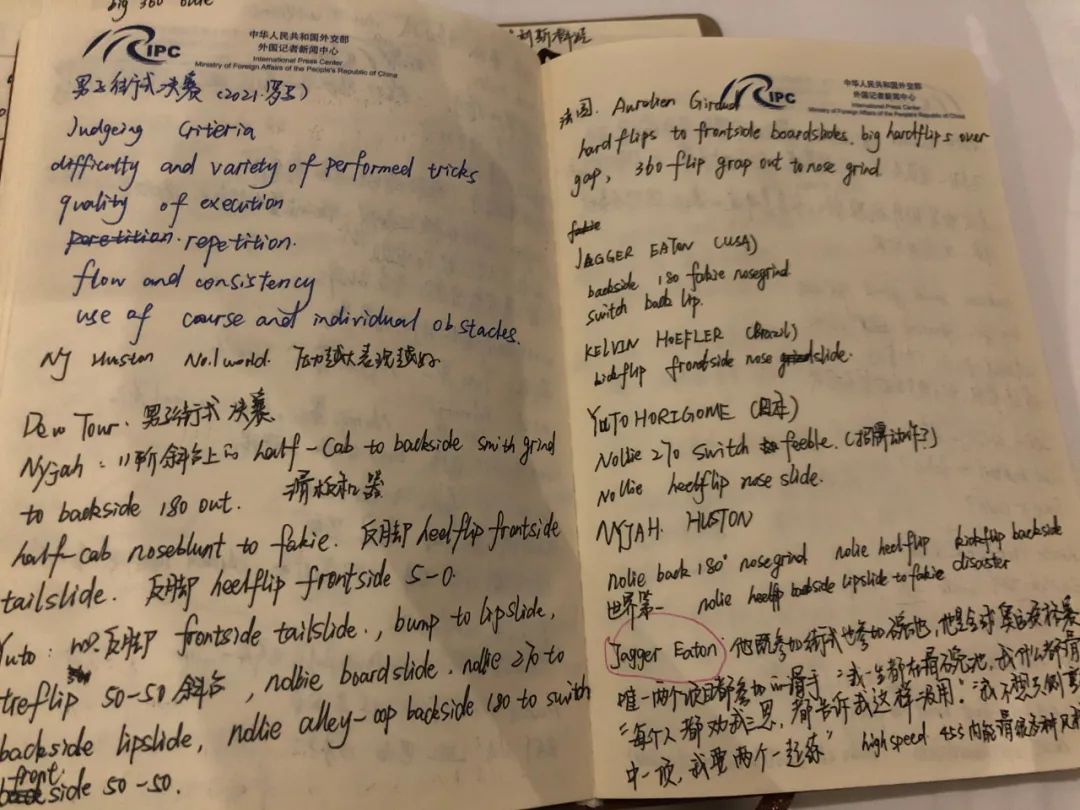 big 360
IPC
中华人民共和国外交部
外国记者新闻中心
International Press Center
Ministry of Foreign Affairs of the People's Republic of China
男子街式决赛 (2021.罗马)
Judgeing Criteria
difficulty and variety of performed tricks
quality of execution
repetition.
flow and consistency
use of course and individual obstacles.
NJ Huston No.1 world. 压力越大表现越好
Dew Tour. 男子街式决赛
Nyjah: 11阶斜台上的 half-Cab to backside smith grind
滑板机器
to backside 180 out.
half-cab noseblunt to fakie. 反脚 heelflip frontside
tailslide. 反脚 heelflip frontside 5-0.
Yuto: no2. 反脚 frontside tailslide., bump to lipslide,
treflip 50-50 斜台, nollie boardslide. nollie 270 to
backside lipslide, nollie alley-oop backside 180 to switch
front
side 50-50.
IPC
中华人民共和国外交部
外国记者新闻中心
International Press Center
Ministry of Foreign Affairs of the People's Republic of China
法国. Aurelien Giraud
hardflips to frontside boardslides. big hardflips over
gap, 360-flip grap out to nose grind
fakie
JAGGER EATON (USA)
backside 180 fakie nosegrind
switch back lip.
KELVIN HOEFLER (Brazil)
kickflip frontside nose slide.
YUTO HORIGOME (日本)
Nollie 270 switch feeble. (招牌动作?)
Nollie heelflip nose slide.
NYJAH. HUSTON
nolie back 180° nosegrind nolie heelflip kickflip backside
disaster
世界第一 nolie heelflip backside lipslide to fakie
Jagger Eaton: 他既参加街式也参加碗池, 他是全球
唯一两个项目都参加的滑手 "我一生都在滑碗池, 我什么都滑
"每个人都劝我三思, 都告诉我这样没用." "我不想
中一项, 我要两个一起练" high speed 45s 内能滑很多种